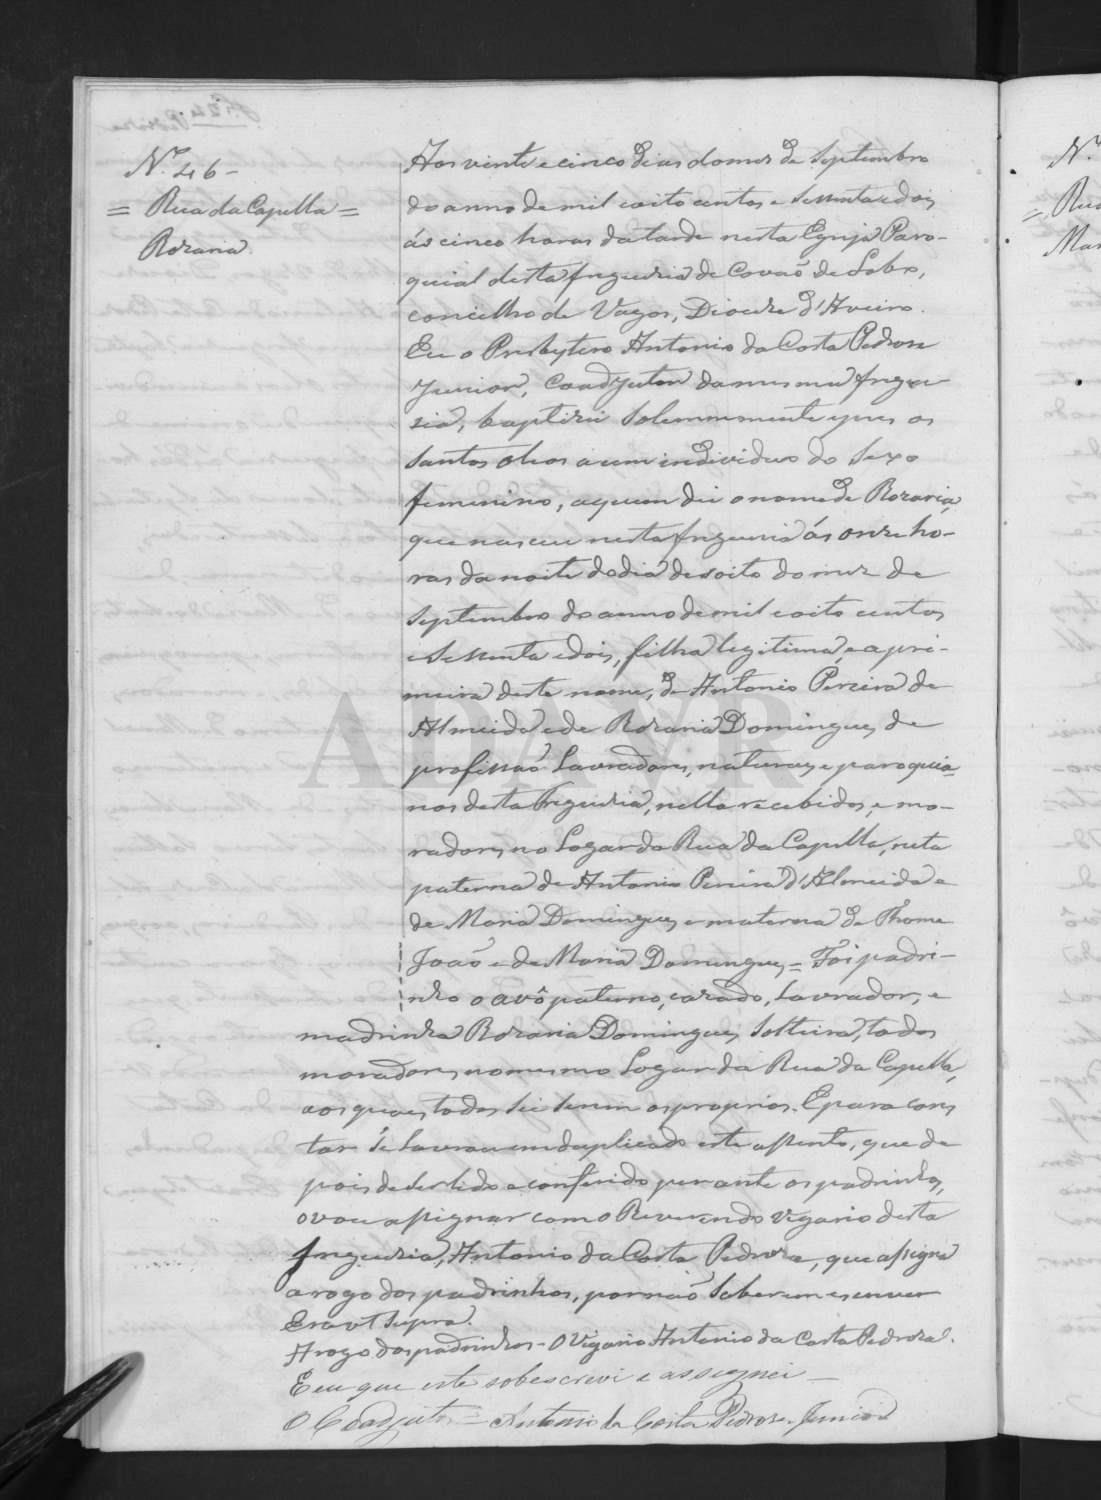 Nº 46-
= Rua da Capella =
Rozaria
Aos vinte e cinco dias do mez de Septembro
do anno de mil e oito centos e sessenta e dois
ás cinco horas da tarde nesta Egreja Paro-
quial desta freguezia de Covaõ de Lobo,
concelho de Vagos, Diocese d'Aveiro.
Eu o Presbytero Antonio da Costa Pedroza
Junior, Coadjutor da mesma fregue-
zia, baptizei solemnemente e puz os
santos oleos a um individuo do sexo
femenino, a quem dei o nome de Rozaria,
que nasceu nesta freguezia ás onze ho-
ras da noite do dia desoito do mez de
Septembro do anno de mil e oito centos
e sessenta e dois, filha legitima, e a pri-
meira deste nome, de Antonio Pereira de
Almeida e de Rozaria Domingues de
profissaõ Lavradores, naturaes e paroquia-
nos desta Freguezia, nella recebidos, e mo-
radores no Logar da Rua da Capella, neta
paterna de Antonio Pereira d'Almeida e
de Maria Domingues e materna de Thome
Joaõ e de Maria Domingues = Foi padri-
nho o avô paterno, cazado, Lavrador, e
madrinha Rozaria Domingues Solteira, todos
moradores no mesmo Logar da Rua da Capella,
aos quaes todos sei serem os proprios. E para cons
tar se lavrou em duplicado este assento, que de
pois de ser lido e conferido perante os padrinhos,
o vou assignar com o Reverendo vigario desta
freguezia, Antonio da Costa Pedroza, que assigna
a rogo dos padrinhos, por naõ saberem escrever
Era vt supra.
A rogo dos padrinhos - O Vigario Antonio da Costa Pedroza.
E eu que este sobescrevi e assignei -
O Coadjutor = Antonio da Costa Pedroza Junior
ADAVR
Nº
Rua